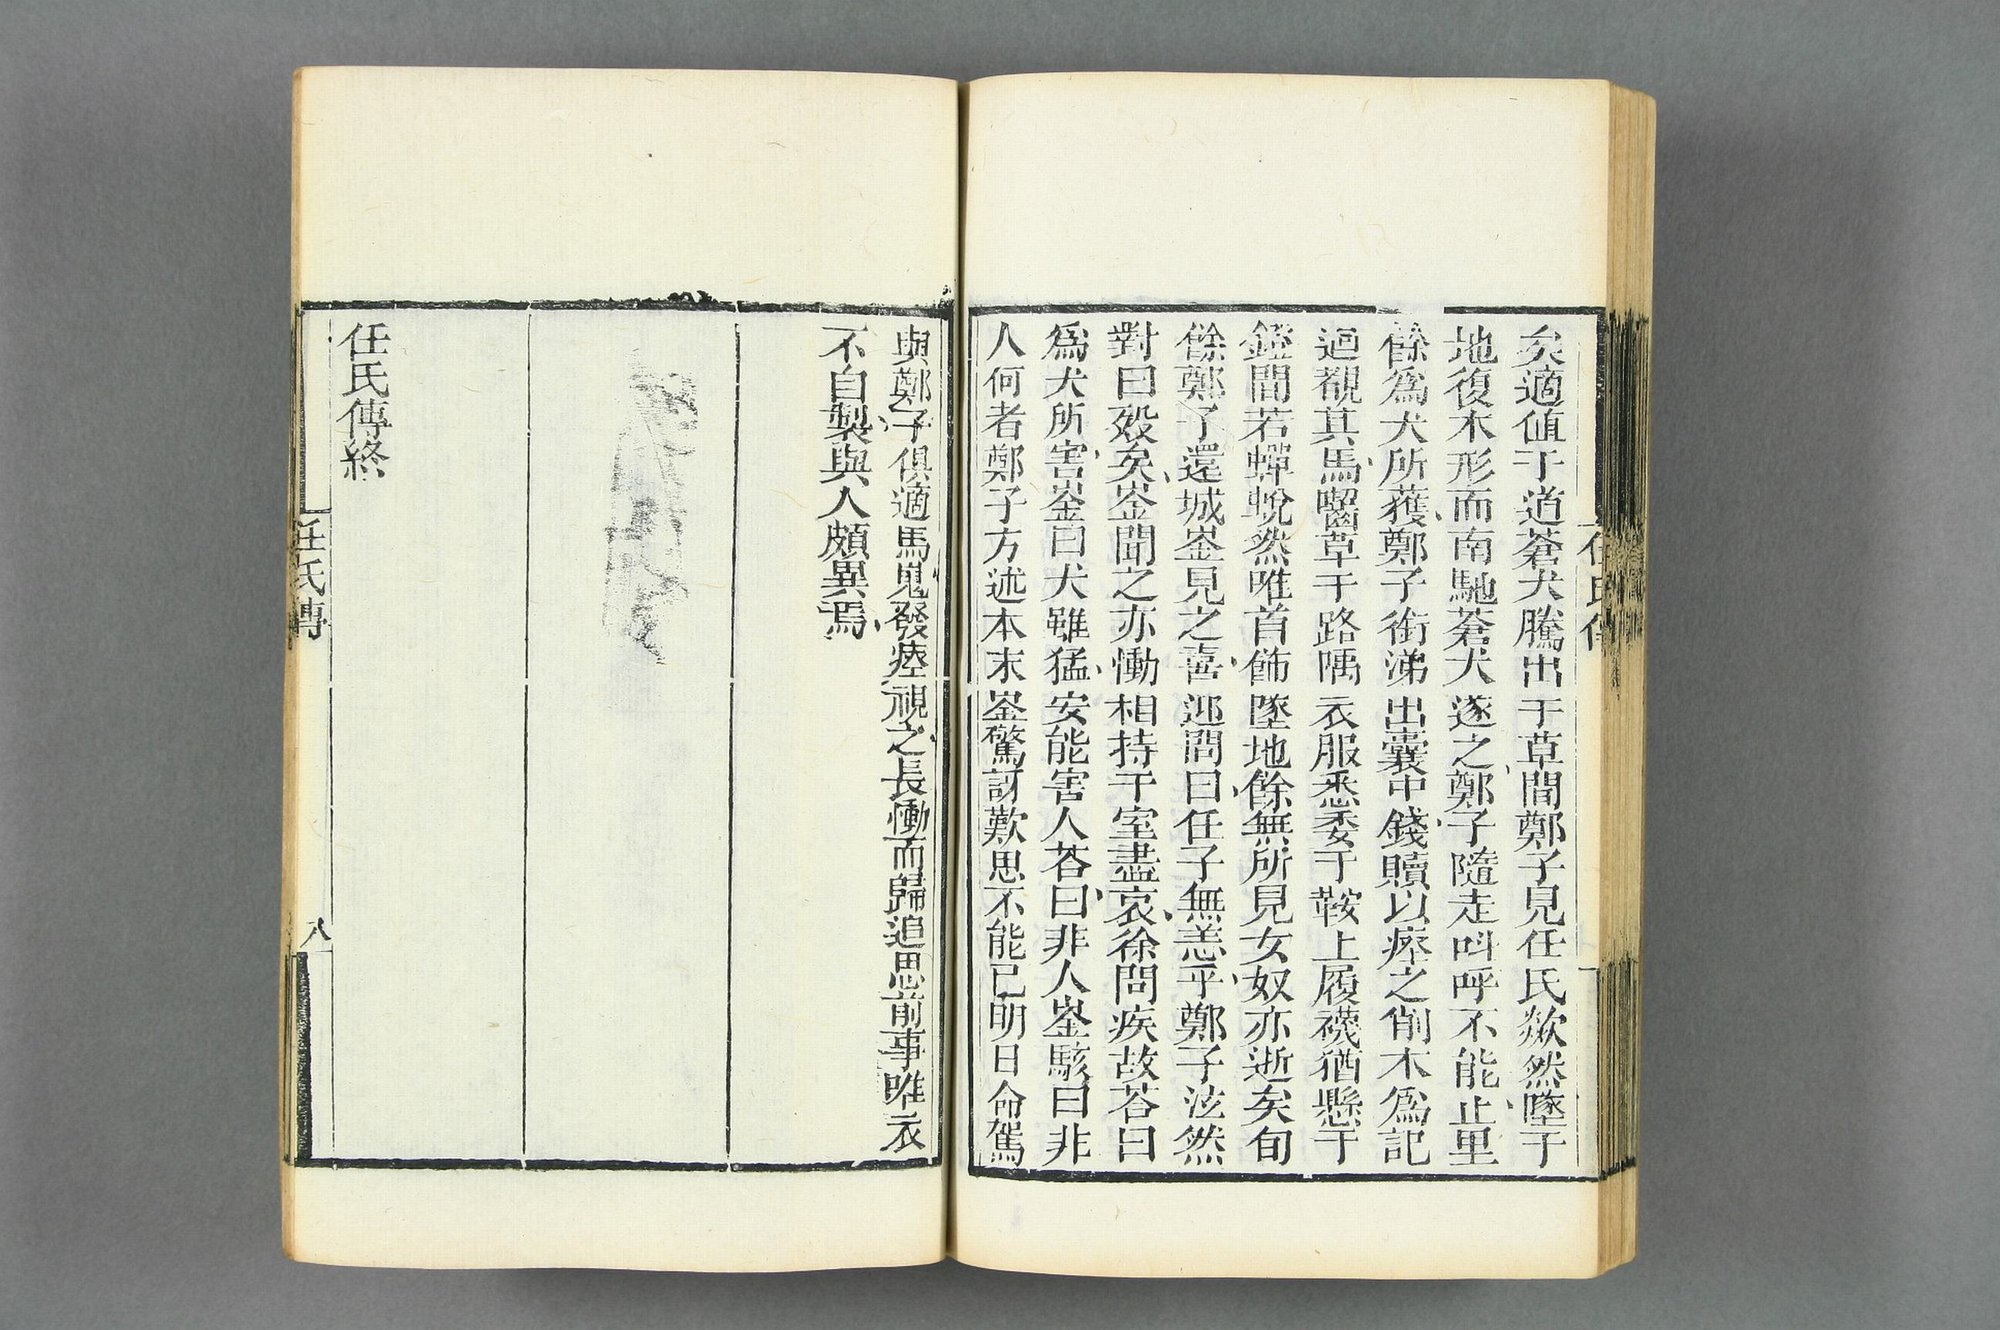 矣適值于道蒼犬騰出于草間鄭子見任氏欻然墜于
地復本形而南馳蒼犬遂之鄭子隨走叫呼不能止里
餘爲犬所獲鄭子銜涕出囊中錢贖以瘞之削木爲記
迴覩其馬囓草于路隅衣服悉委于鞍上履襪猶懸于
鐙間若蟬蛻然唯首飾墜地餘無所見女奴亦逝矣旬
餘鄭子還城崟見之喜迎問曰任子無恙乎鄭子泫然
對曰歿矣崟聞之亦慟相持于室盡哀徐問疾故荅曰
爲犬所害崟曰犬雖猛安能害人荅曰非人崟駭曰非
人何者鄭子方述本末崟驚訝歎思不能已明日命駕
任氏傳
與鄭子俱適馬嵬發瘞視之長慟而歸追思前事唯衣
不自製與人頗異焉
任氏傳終
任氏傳
八